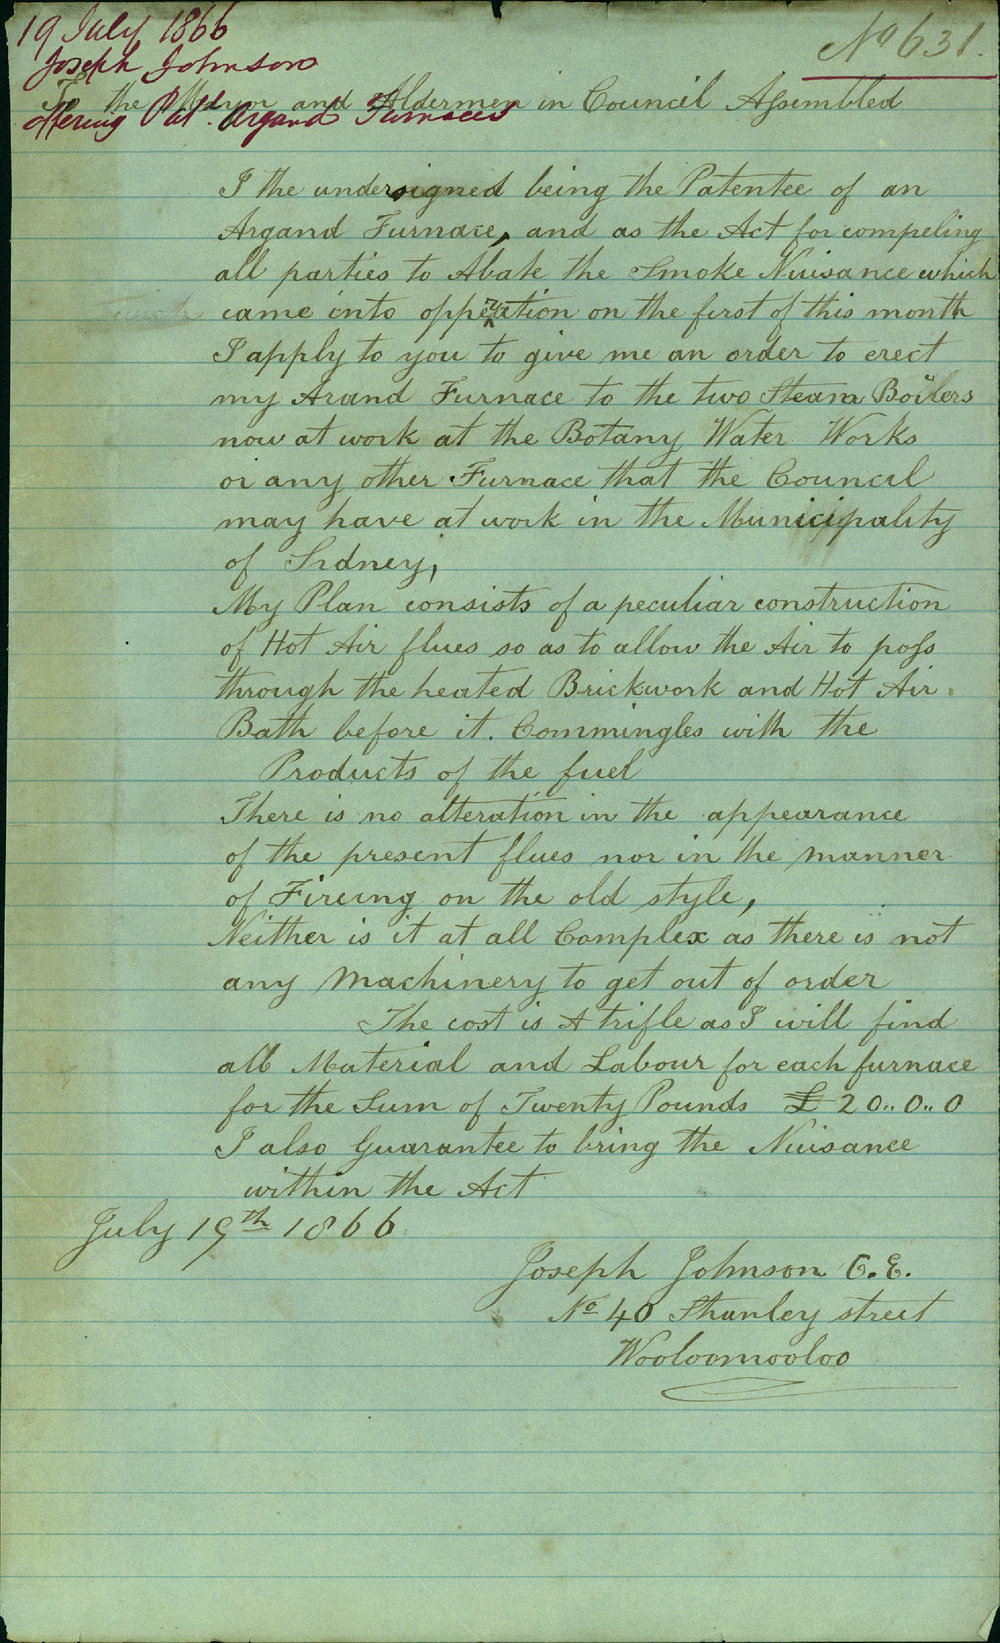 19 July 1866
Joseph Johnson
Offering Pat. Argand Furnaces
No 631.
To the Mayor and Aldermen in Council Assembled
I the undersigned being the Patentee of an
Argand Furnace, and as the Act for compeling
all parties to Abate the Smoke Nuisance which
came into opperation on the first of this month
I apply to you to give me an order to erect
my Arand Furnace to the two Steam Boilers
now at work at the Botany Water Works
or any other Furnace that the Council
may have at work in the Municipality
of Sidney,
My Plan consists of a peculiar construction
of Hot Air flues so as to allow the Air to pass
through the heated Brickwork and Hot Air
Bath before it. Commingles with the
Products of the fuel
There is no alteration in the appearance
of the present flues nor in the manner
of Fireing on the old style,
Neither is it at all Complex as there is not
any Machinery to get out of order
The cost is A trifle as I will find
all Material and Labour for each furnace
for the Sum of Twenty Pounds £ 20..0..0
I also Guarantee to bring the Nuisance
within the Act
July 19th 1866
Joseph Johnson C.E.
No 40 Stanley street
Wooloomooloo